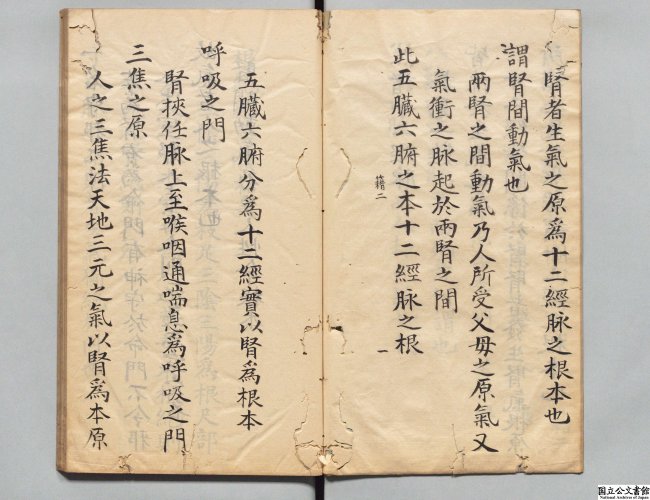 腎者生氣之原爲十二經脉之根本也
謂腎間動氣也
兩腎之間動氣乃人所受父母之原氣又
氣衝之脉起於兩腎之間
此五臟六腑之本十二經脉之根
籍二
一
五臟六腑分爲十二經實以腎爲根本
呼吸之門
腎挾任脉上至喉咽通喘息爲呼吸之門
三焦之原
人之三焦法天地三元之氣以腎爲本原
国立公文書館
National Archives of Japan